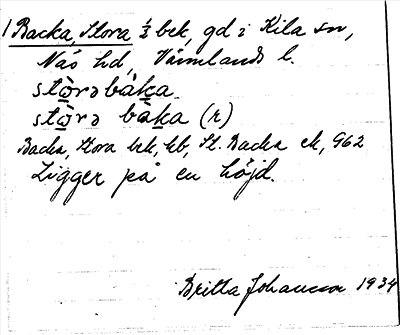 Backa, Stora 1/2 bek, gd i Kila sn,
Näs hd, Värmlands l.
stὼrə bàka
stὼrə bàka (r)
Backa, Stora hek, kb, St. Backa ek, G62
Ligger på en höjd.
Britta Johansson 1934